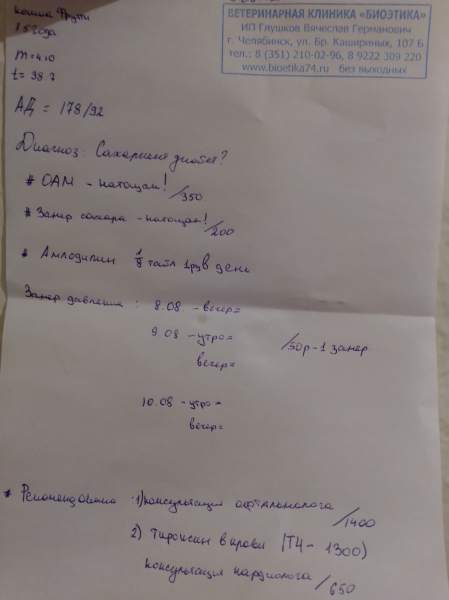 кошка Фрути
7.5 года
m = 4.0
t = 38.7
ВЕТЕРИНАРНАЯ КЛИНИКА «БИОЭТИКА»
ИП Глушков Вячеслав Германович
г. Челябинск, ул. Бр. Кашириных, 107 Б
тел.: 8 (351) 210-02-96, 8 9222 309 220
www.bioetika74.ru без выходных
АД = 178/92
Диагноз: Сахарный диабет?
* ОАМ - натощак! /350
* Замер сахара - натощак! /200
* Амлодипин 1/8 табл 1 р/в день
Замер давления : 8.08 - вечер=
9.08 - утро=
вечер=
/50р - 1 замер
10.08 - утро =
вечер=
* Рекомендовано : 1) консультация офтальмолога /1400
2) Тироксин в крови (Т4 - 1300)
консультация кардиолога /650